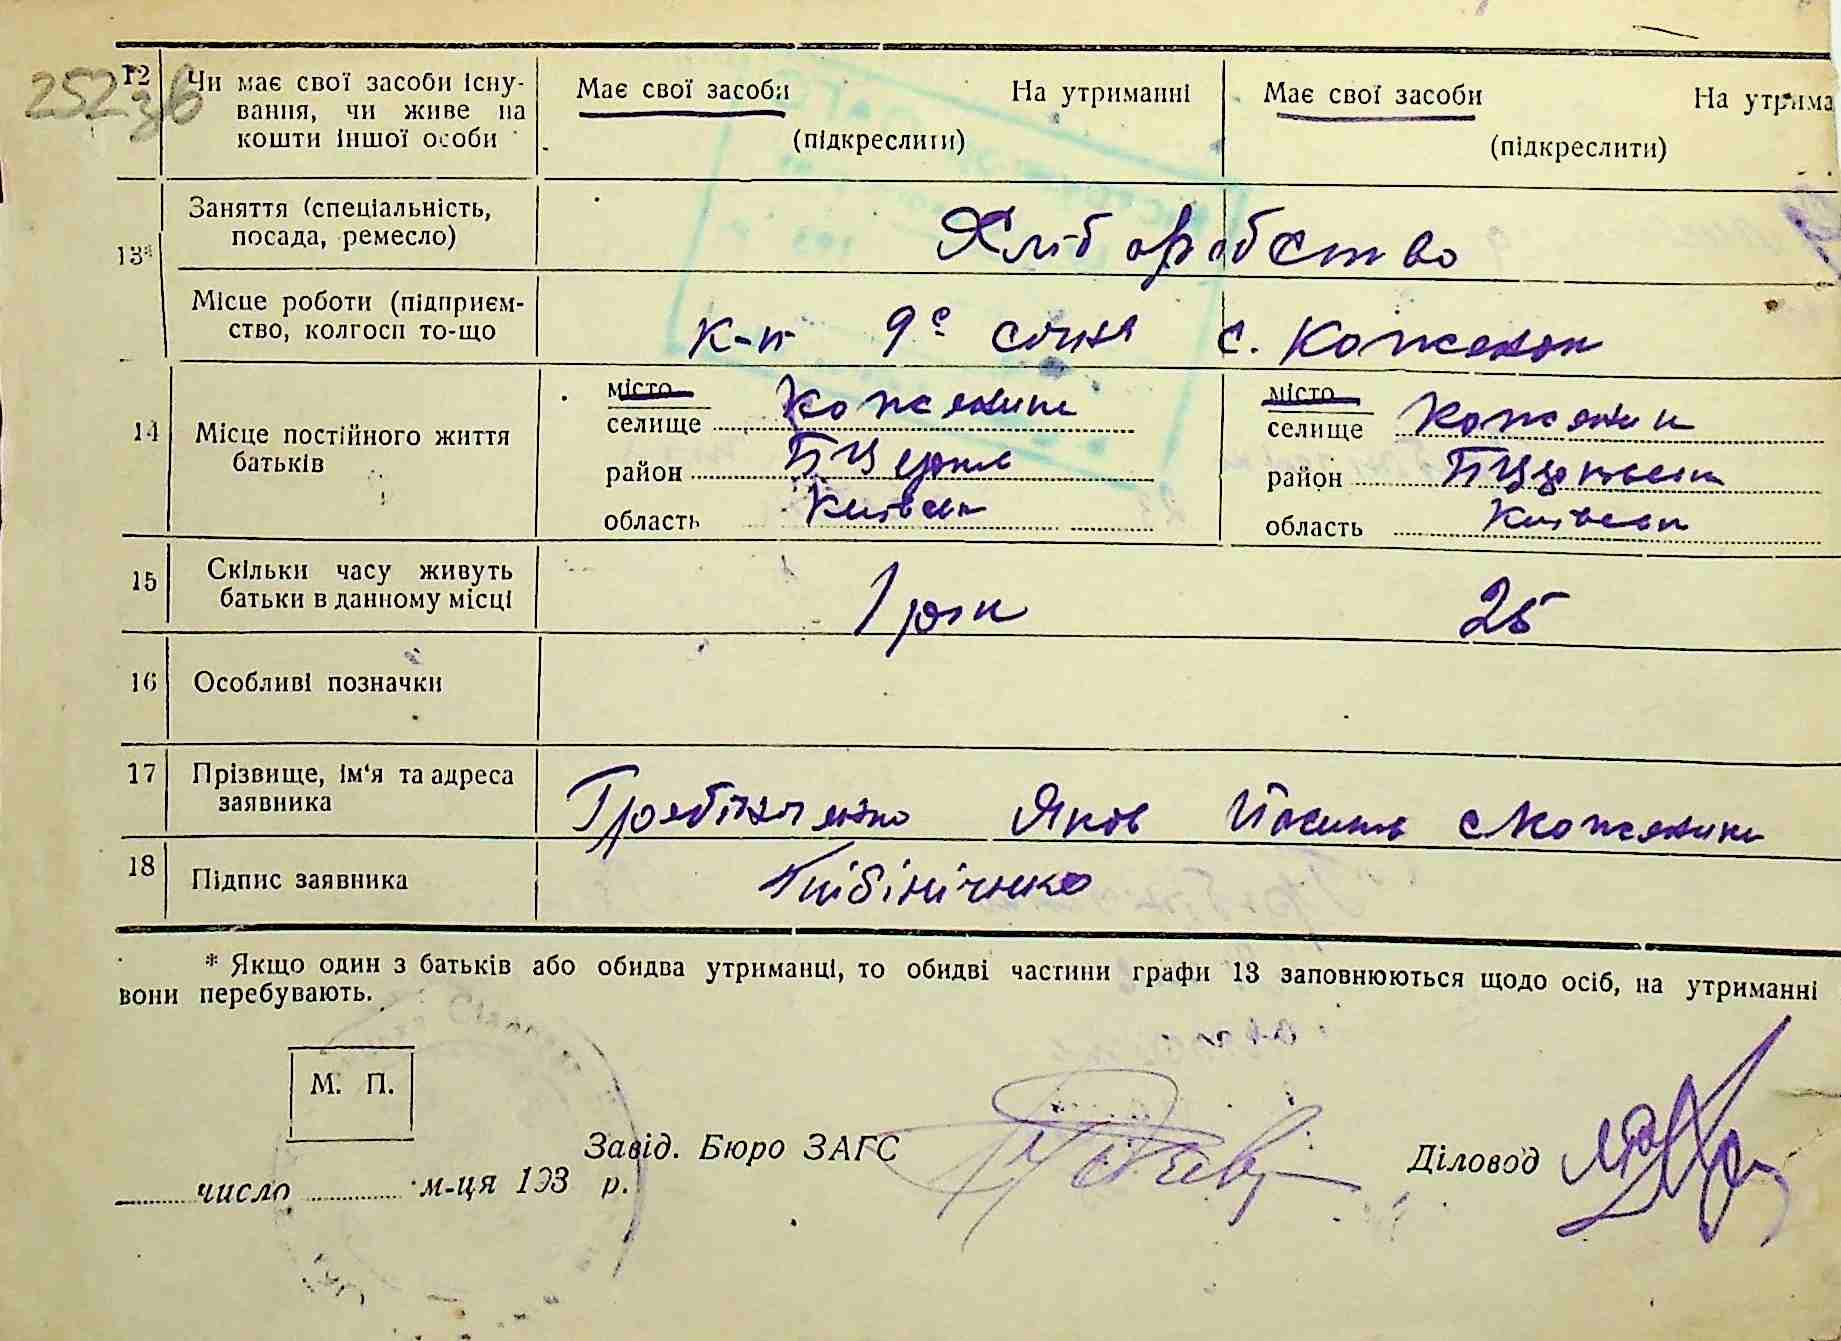 252зв
12 Чи має свої засоби існу-
вання, чи живе на
кошти іншої особи
Має свої засоби На утриманні
(підкреслити)
Має свої засоби На утрима
(підкреслити)
13* Заняття (спеціальність,
посада, ремесло)
Хліборобство
Місце роботи (підприєм-
ство, колгосп то-що
к-п 9е січня с. Кожанки
14 Місце постійного життя
батьків
місто
селище Кожанки
район БЦеркв
область Київськ
місто
селище Кожанки
район БЦерківськ
область Київськ
15 Скільки часу живуть
батьки в данному місці
1 рік 25
16 Особливі позначки
17 Прізвище, ім'я та адреса
заявника
Яков с Кожанки
18 Підпис заявника
* Якщо один з батьків або обидва утриманці, то обидві частини графи 13 заповнюються щодо осіб, на утриманні
вони перебувають.
М. П.
Завід. Бюро ЗАГС
Діловод
число м-ця 193 р.